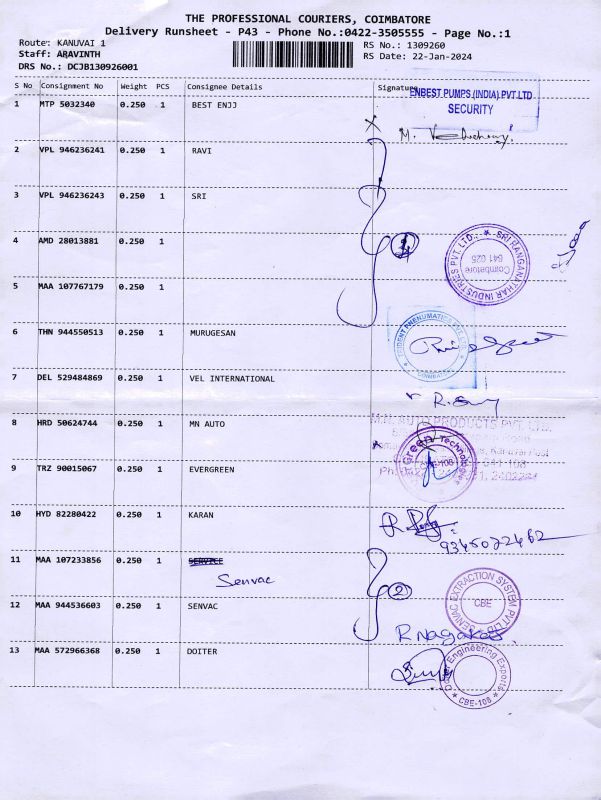 THE PROFESSIONAL COURIERS, COIMBATORE
Delivery Runsheet - P43 - Phone No.:0422-3505555 - Page No.:1
Route: KANUVAI 1
Staff: ARAVINTH
DRS No.: DCJB130926001
RS No.: 1309260
RS Date: 22-Jan-2024
S No Consignment No Weight PCS Consignee Details Signature
ENBEST PUMPS (INDIA) PVT.LTD
SECURITY
1 MTP 5032340 0.250 1 BEST ENJJ
2 VPL 946236241 0.250 1 RAVI
3 VPL 946236243 0.250 1 SRI
4 AMD 28013881 0.250 1
SRI RANGANATHAR INDUSTRIES PVT. LTD.
Coimbatore
641 025
5 MAA 107767179 0.250 1
6 THN 944550513 0.250 1 MURUGESAN
TRIDENT PNEUMATICS PVT LTD
COIMBATORE
7 DEL 529484869 0.250 1 VEL INTERNATIONAL
8 HRD 50624744 0.250 1 MN AUTO
M.N. AUTO PRODUCTS PVT. LTD.
Green Technologies
9 TRZ 90015067 0.250 1 EVERGREEN
10 HYD 82280422 0.250 1 KARAN
9345022462
11 MAA 107233856 0.250 1 SERVICE
Senvac
2
12 MAA 944536603 0.250 1 SENVAC
EXTRACTION SYSTEM PVT LTD
CBE
R Nagaraj
13 MAA 572966368 0.250 1 DOITER
Engineering Exports
CBE-108